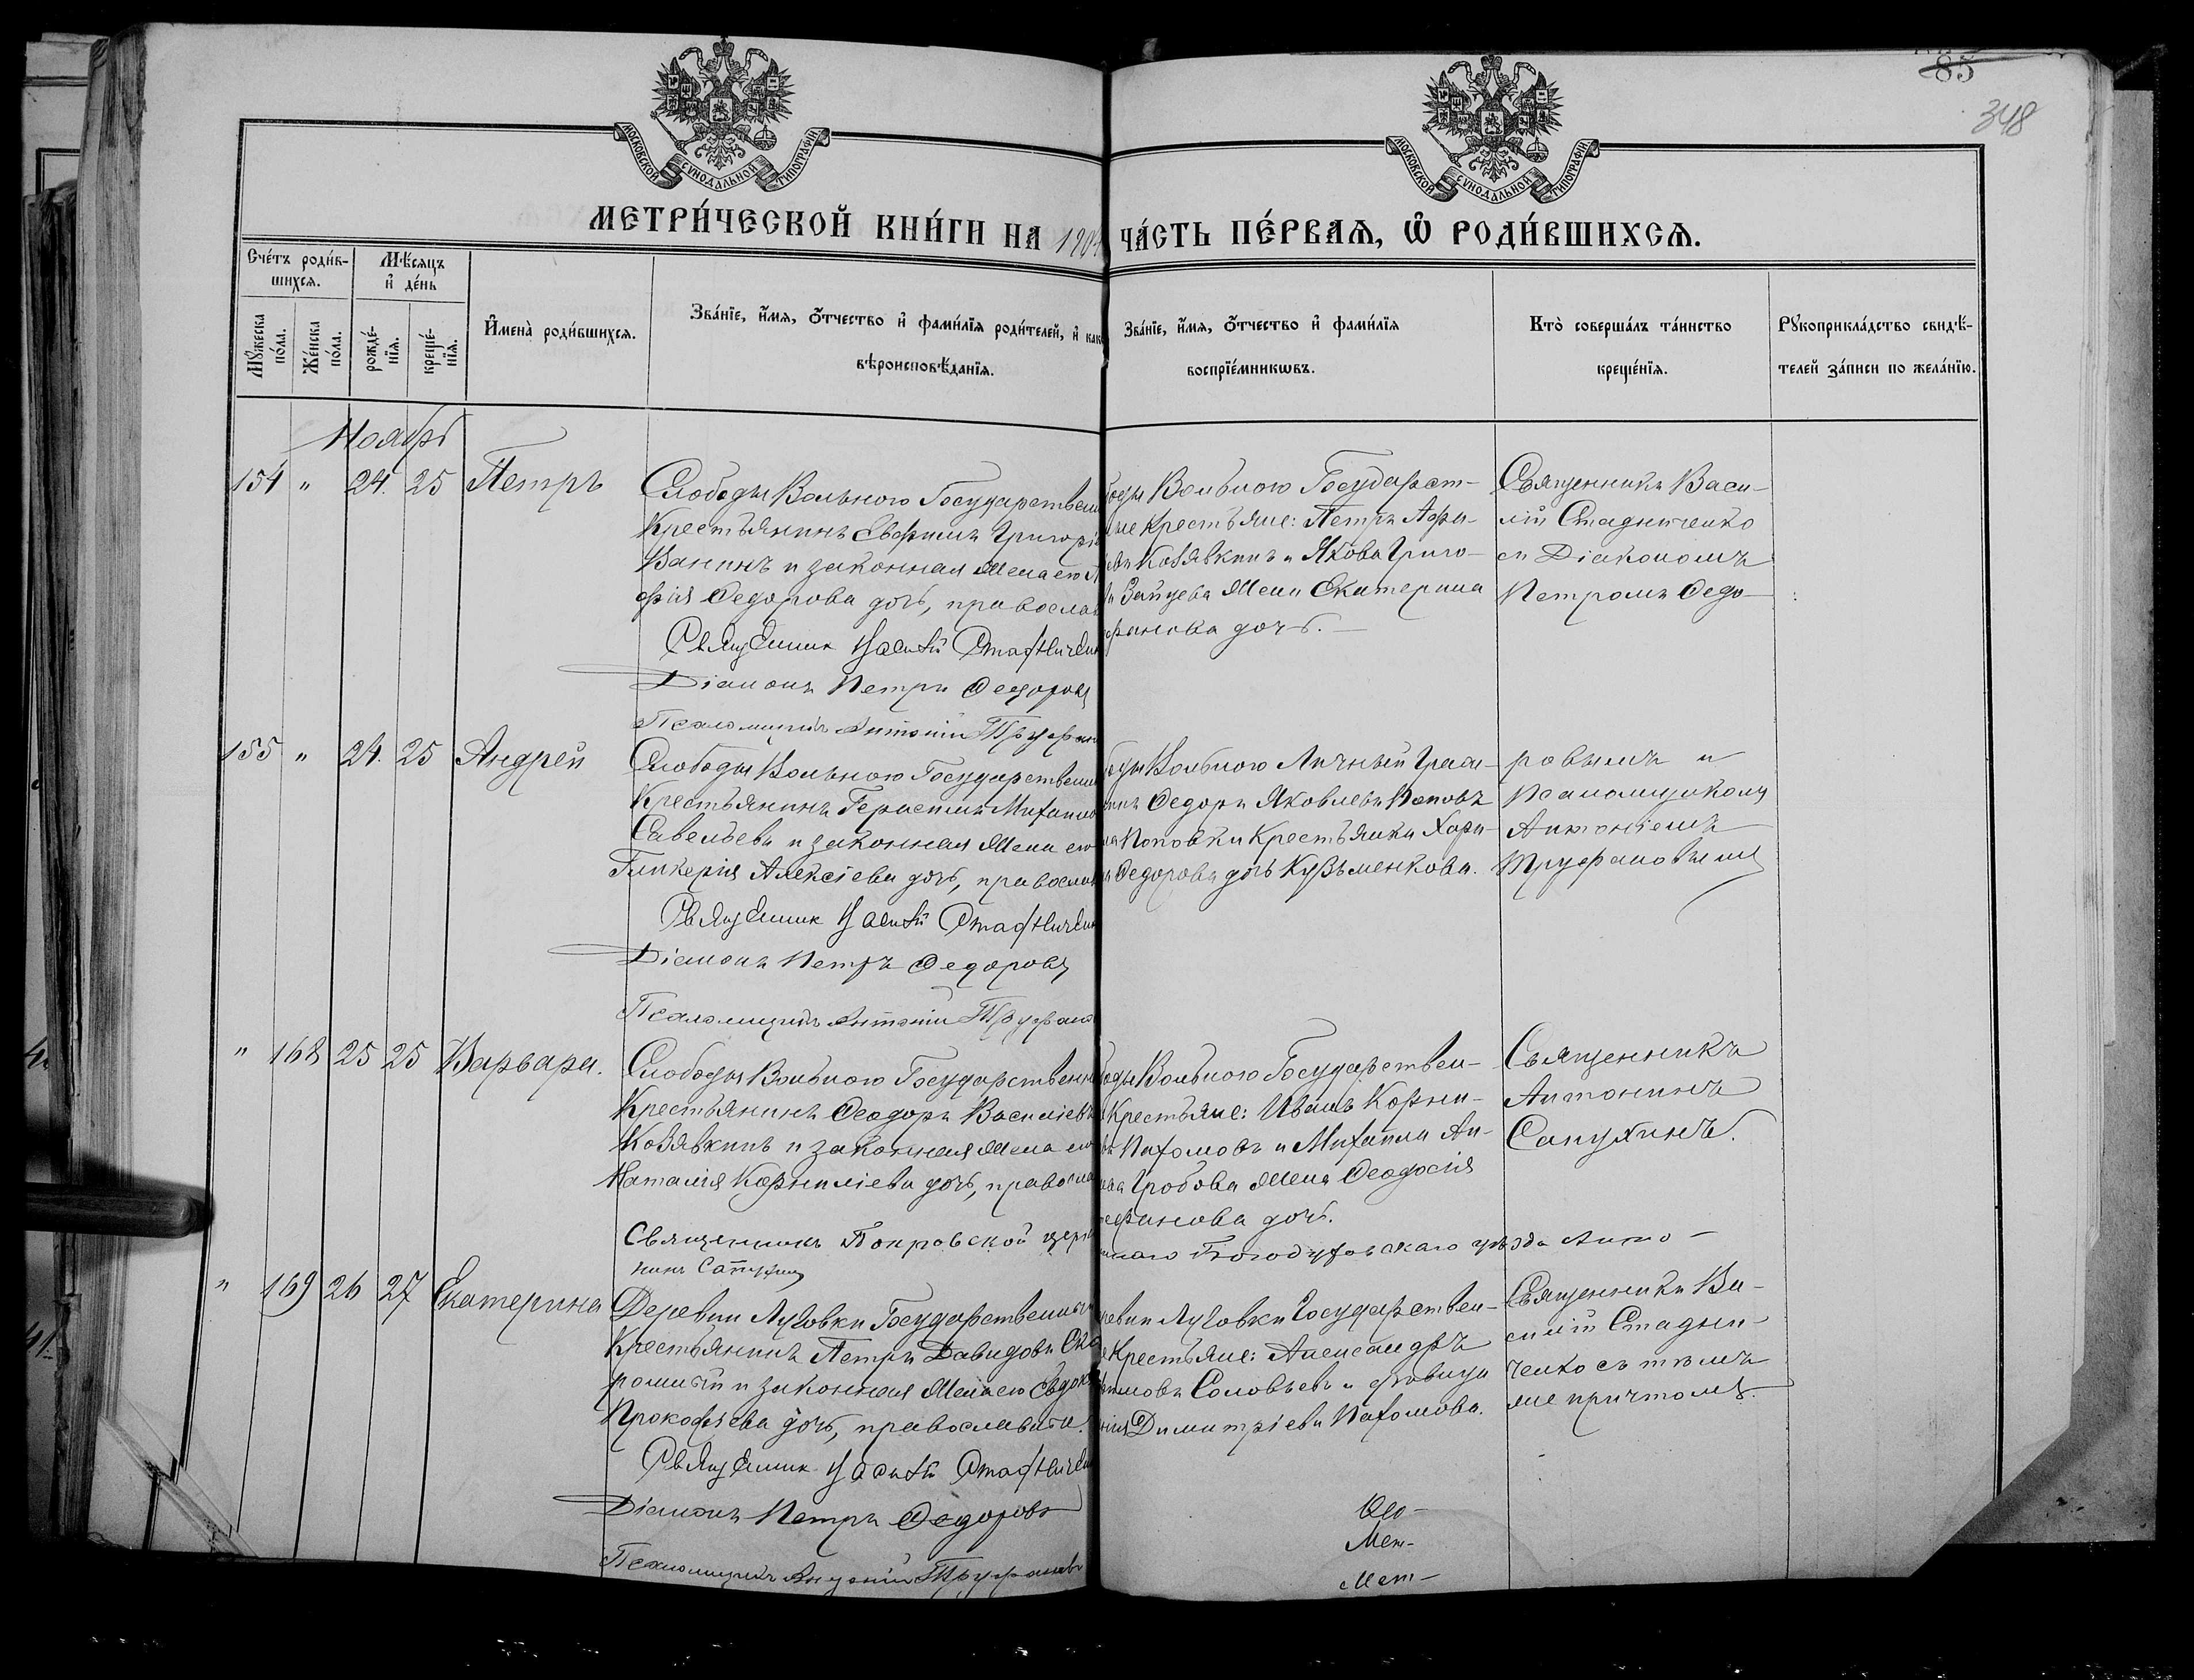 85
348
МОСКОВСКОЙ СѴНОДАЛЬНОЙ ТИПОГРАФІИ
МОСКОВСКОЙ СѴНОДАЛЬНОЙ ТИПОГРАФІИ
МЕТРИ́ЧЕСКОЙ КНИ́ГИ НА 1904 ЧА́СТЬ ПЕ́РВАѦ, Ѡ҆ РОДИ́ВШИХСѦ.
Сче́тъ роди́в-
шихсѧ.
Мѣ́сяцъ
и҆ де́нь
Мꙋ́жеска по́ла.
Же́нска по́ла.
рожде́-
нїѧ.
креще́-
нїѧ.
И҆мена̀ роди́вшихсѧ.
Зва́нїе, и҆́мѧ, ѻ҆́тчество и҆ фами́лїѧ роди́телей, и҆ как
вѣроисповѣ́данїѧ.
Зва́нїе, и҆́мѧ, ѻ҆́тчество и҆ фами́лїѧ
воспрїе́мникѡвъ.
Кто̀ соверша́лъ та́инство
креще́нїѧ.
Рꙋкоприкла́дство свидѣ́-
телей за́писи по жела́нїю.
Ноябрь
154 " 24. 25 Петръ
Слободы Вольного Государствен
Крестьянинъ Евфимъ Григорі
Ванинъ и законная жена его
фія Федорова дочь, православ
Священник Василій Стадничен
Діаконъ Петръ Федоровъ
Псаломщикъ Антоній Труфан
боды Вольного Государст-
ные крестьяне: Петръ Афа-
евъ Козявкинъ и Якова Григо-
Зайцева жена Екатерина
фанова дочь.
Священникъ Васи-
лій Стадниченко
съ Діакономъ
Петромъ Федо-
155 " 24. 25 Андрей
Слободы Вольного Государствен
Крестьянинъ Герасимъ Михайло
Савельевъ и законная жена его
Гликерія Алексіева дочь, православ
Священник Василій Стадничен
Діаконъ Петръ Федоровъ
Псаломщикъ Антоній Труфано
боды Вольного Личный Граж-
нинъ Федоръ Яковлевъ Поповъ
Поповки Крестьянка Хари-
Федорова дочь Кузьменкова.
ровымъ и
Псаломщикомъ
Антоніемъ
Труфановымъ
" 168 25 25 Варвара.
Слободы Вольного Государственн
Крестьянинъ Феодоръ Василіевъ
Козявкинъ и законная жена его
Наталія Корниліева дочь, правосла
Священникъ Покровской церк
нинъ Сапухинъ
боды Вольного Государствен-
Крестьяне: Иванъ Корни-
въ Пахомовъ и Михаила Ан-
Гробова жена Феодосія
ефанова дочь.
Богодуховскаго уѣзда Анто-
Священникъ
Антонинъ
Сапухинъ.
" 169 26 27 Екатерина
Деревни Лутовки Государственный
Крестьянинъ Петръ Давидовъ Ско
ромный и законная жена его Евдок
Прокофіева дочь, православные.
Священник Василій Стадничен
Діаконъ Петръ Федоровъ
Псаломщикъ Антоній Труфановъ
ревни Лутовки Государствен-
Крестьяне: Александръ
Соловьевъ и дѣвица
Димитріева Пахомова.
Священникъ Ва-
силій Стадни-
ченко съ тѣмъ
же причтомъ.